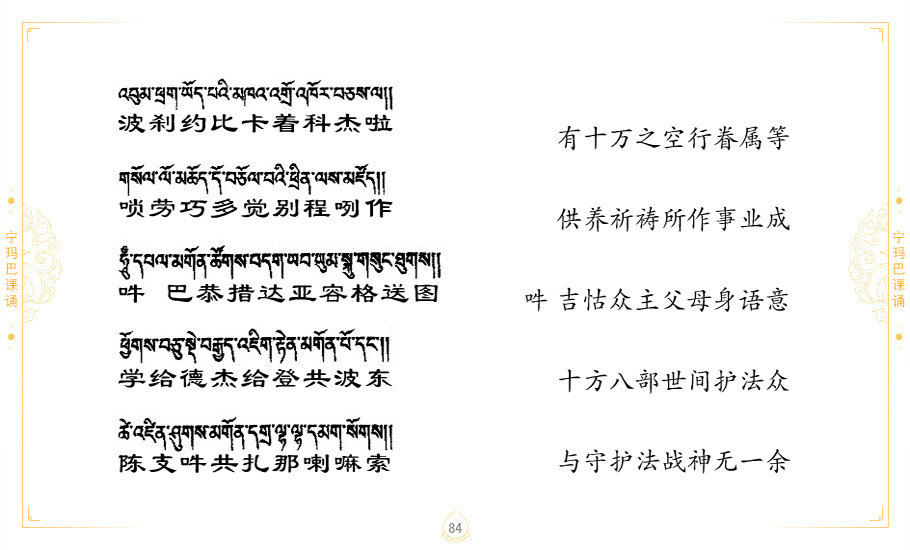 འབུམ་ཕྲག་ཡོད་པའི་མཁའ་འགྲོ་འཁོར་བཅས་ལ།།
波刹约比卡着科杰啦
有十万之空行眷属等
གསོལ་ལོ་མཆོད་དོ་བཅོལ་བའི་ཕྲིན་ལས་མཛོད།།
唢劳巧多觉别程咧作
供养祈祷所作事业成
ཧཱུྃ་དཔལ་མགོན་ཚོགས་བདག་ཡབ་ཡུམ་སྐུ་གསུང་ཐུགས།།
吽 巴恭措达亚容格送图
吽 吉怙众主父母身语意
ཕྱོགས་བཅུ་སྡེ་བརྒྱད་འཇིག་རྟེན་མགོན་པོ་དང་།།
学给德杰给登共波东
十方八部世间护法众
ཚེ་འཛིན་ཤུགས་མགོན་དགྲ་ལྷ་ལྷ་དམག་སོགས།།
陈支吽共扎那喇嘛索
与守护法战神无一余
宁玛巴课诵
宁玛巴课诵
84